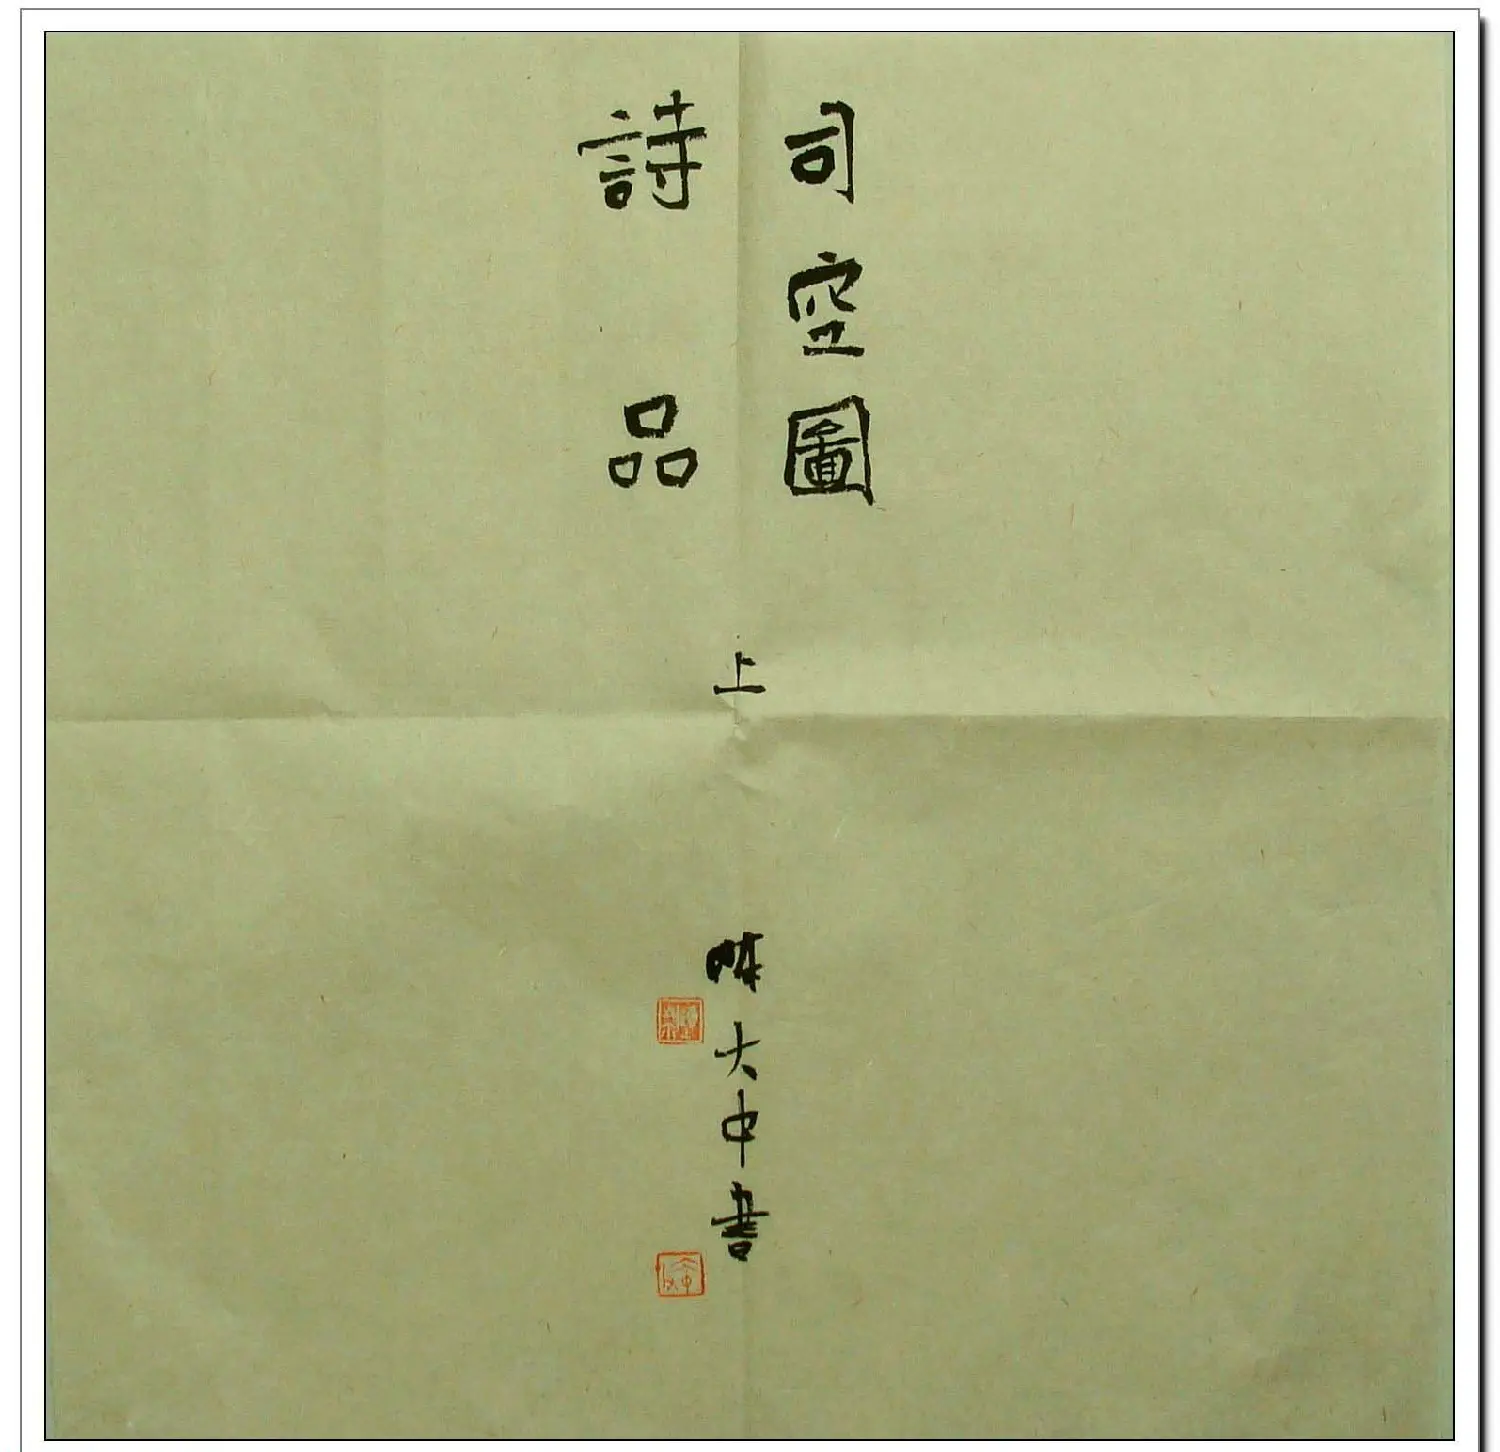 司空圖
詩品
上
陳大中書